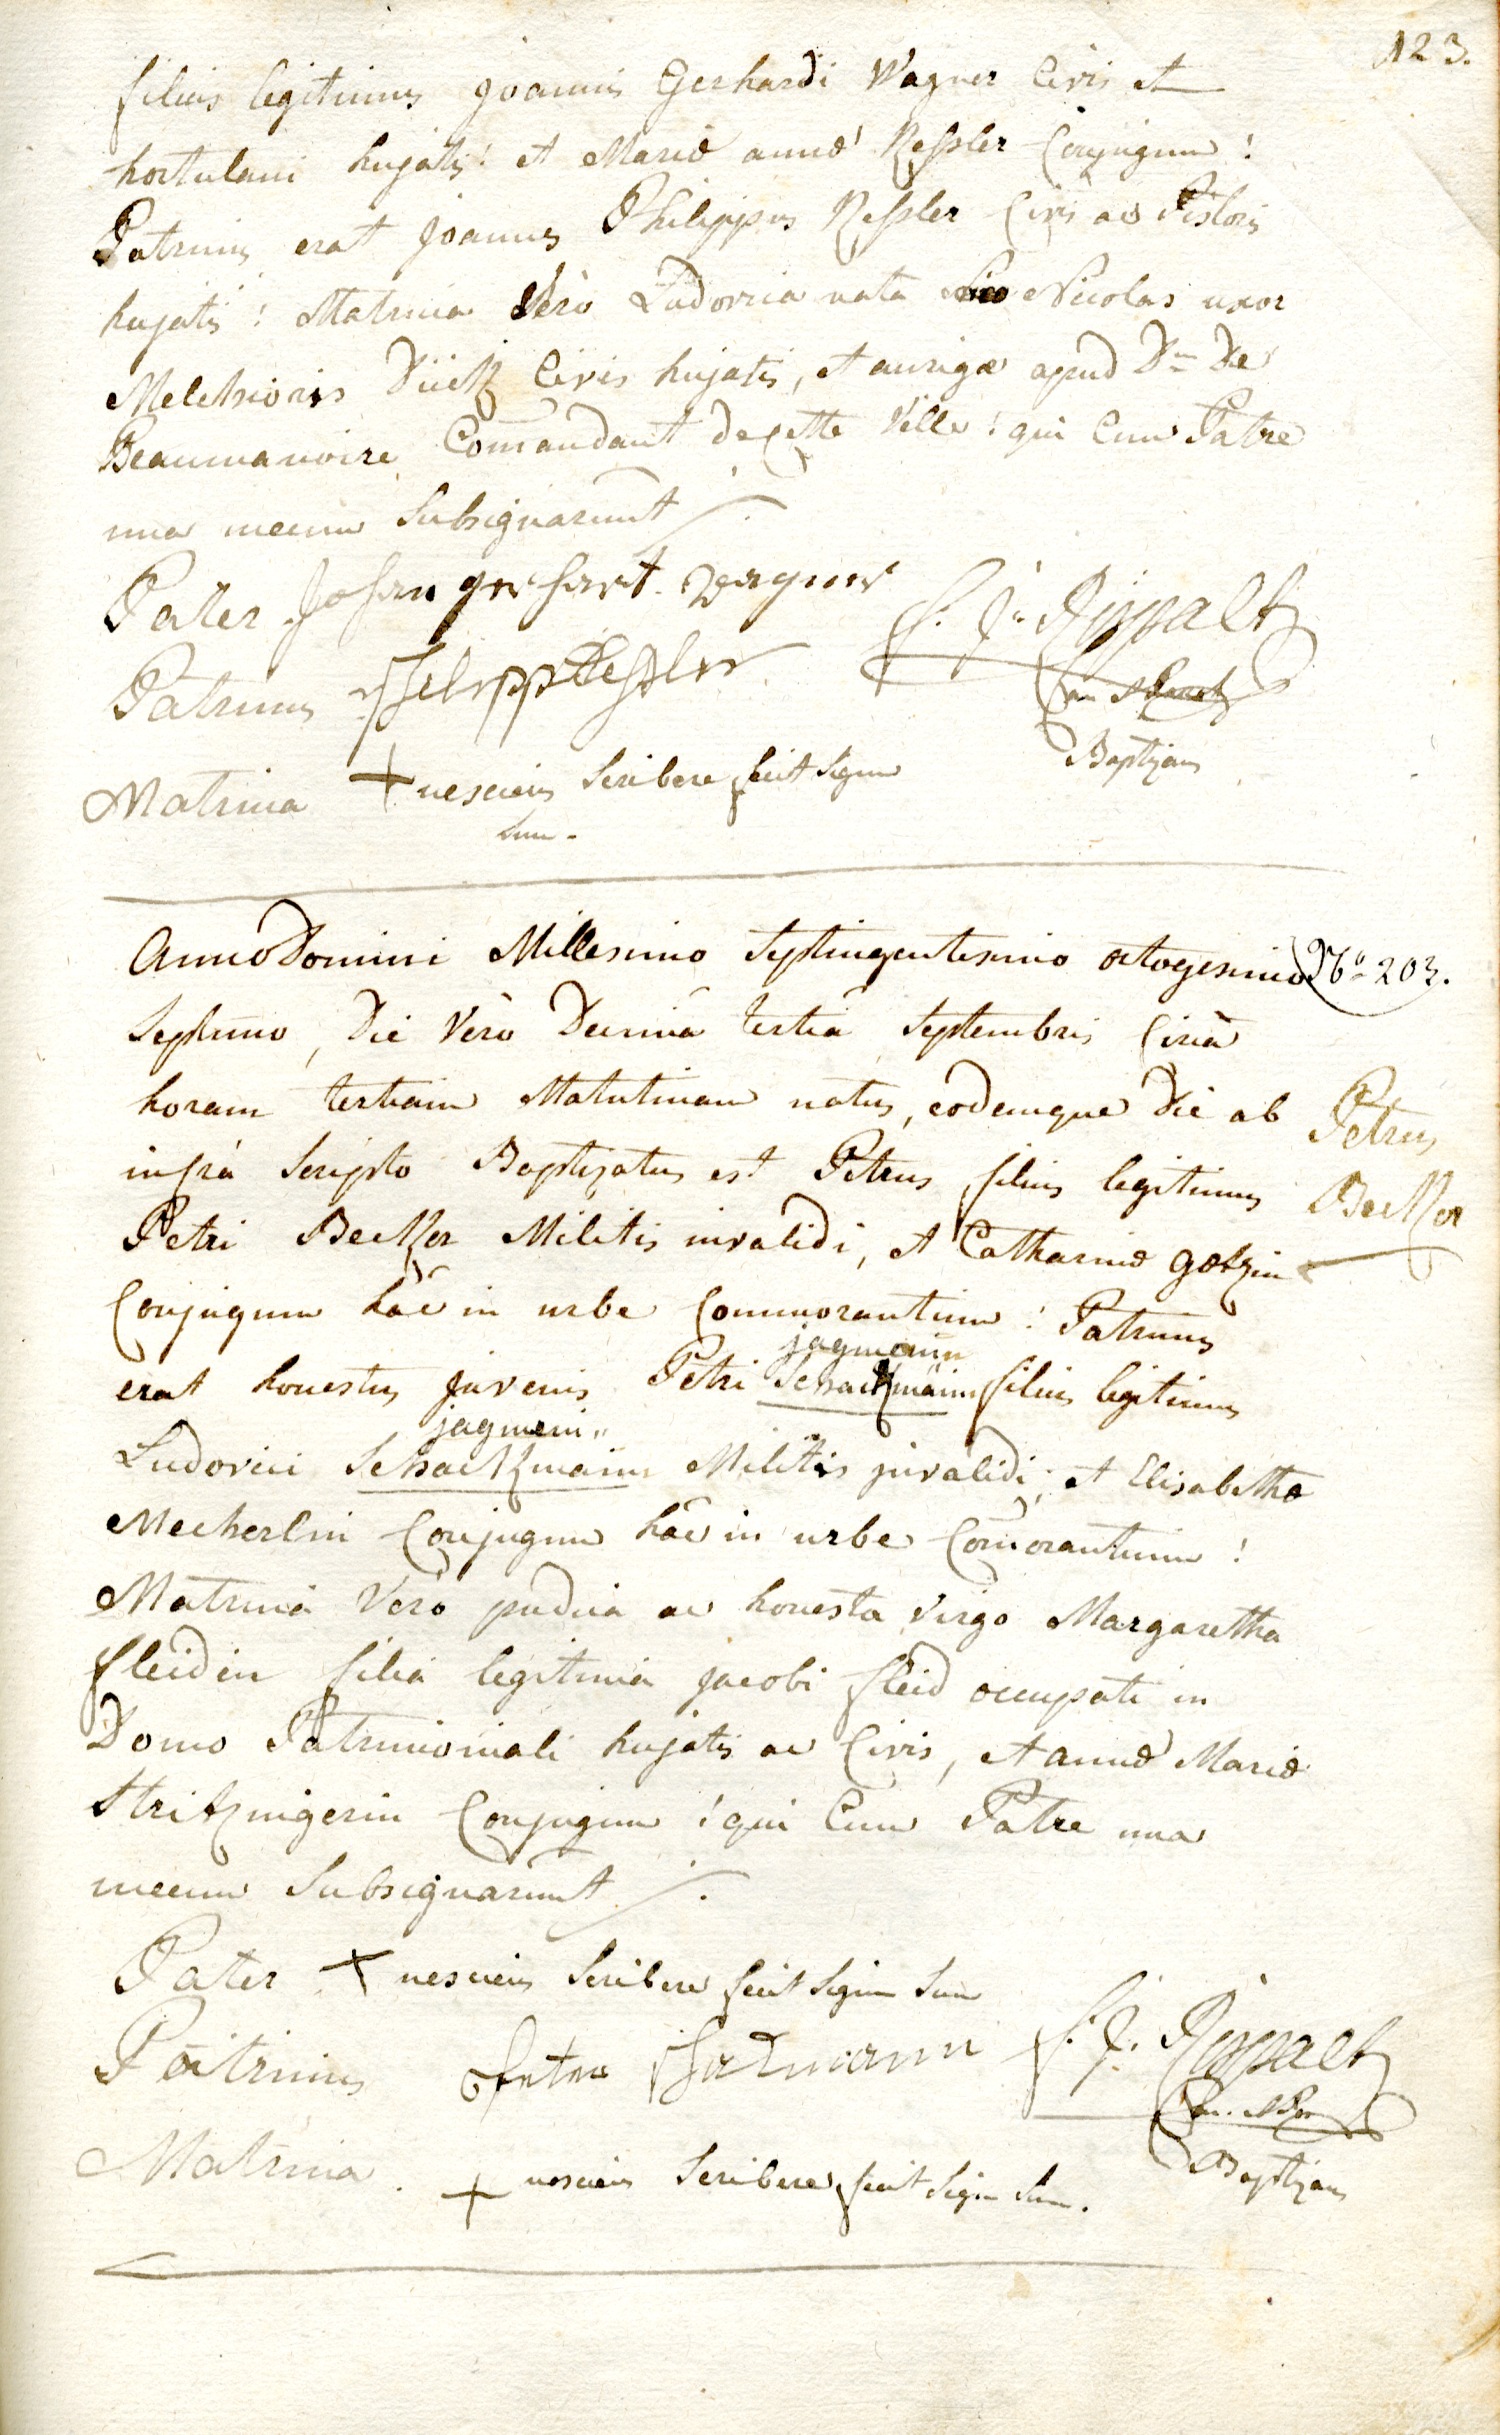 123.
filius legitimus Joannis Gerhardi Wagner Civis et
hortulani hujatis: et Mariæ annæ Kessler Conjugum:
Patrinus erat Joannes Philippus Kessler Civis ac Pistoris
hujatis: Matrina Vero Ludovica nata Nicolas uxor
Melchioris Dück Civis hujatis, et aurigæ apud Dn De
Beaumanoire Comandant de cette Ville: qui Cum Patre
una mecum Subsignarunt
Pater Johan gerhart Wagner
Patrinus Philipp Kessler
F. J. Ruppalt
Baptizans
Matrina + nesciens Scribere fecit Signum
suum.
Anno Domini Millesimo Septingentesimo octogesimo No 203.
Septimo, Die Vero Decima tertia Septembris Circa
horam tertiam Matutinam natus, eodemque Die ab
infra Scripto Baptizatus est Petrus filius legitimus
Petrus
Petri Becker Militis invalidi, et Catharinæ Götzin
Becker
Conjugum hâc in urbe Commorantium: Patrinus
jagmenin
erat honestus juvenis Petri Schackmann filius legitimus
jagmenin
Ludovici Schackmann Militis invalidi, et Elisabetha
Mecherlin Conjugum hâc in urbe Comorantium:
Matrina Vero pudica ac honesta virgo Margaretha
fleidin filia legitima Jacobi fleid occupati in
Domo Patrimoniali hujatis ac Civis, et annæ Mariæ
Stritzingerin Conjugum: qui Cum Patre una
mecum Subsignarunt
Pater + nesciens Scribere fecit Signum Suum
Patrinus Peter Schakmann
F. J. Ruppalt
Baptizans
Matrina + nesciens Scribere fecit Signum Suum.